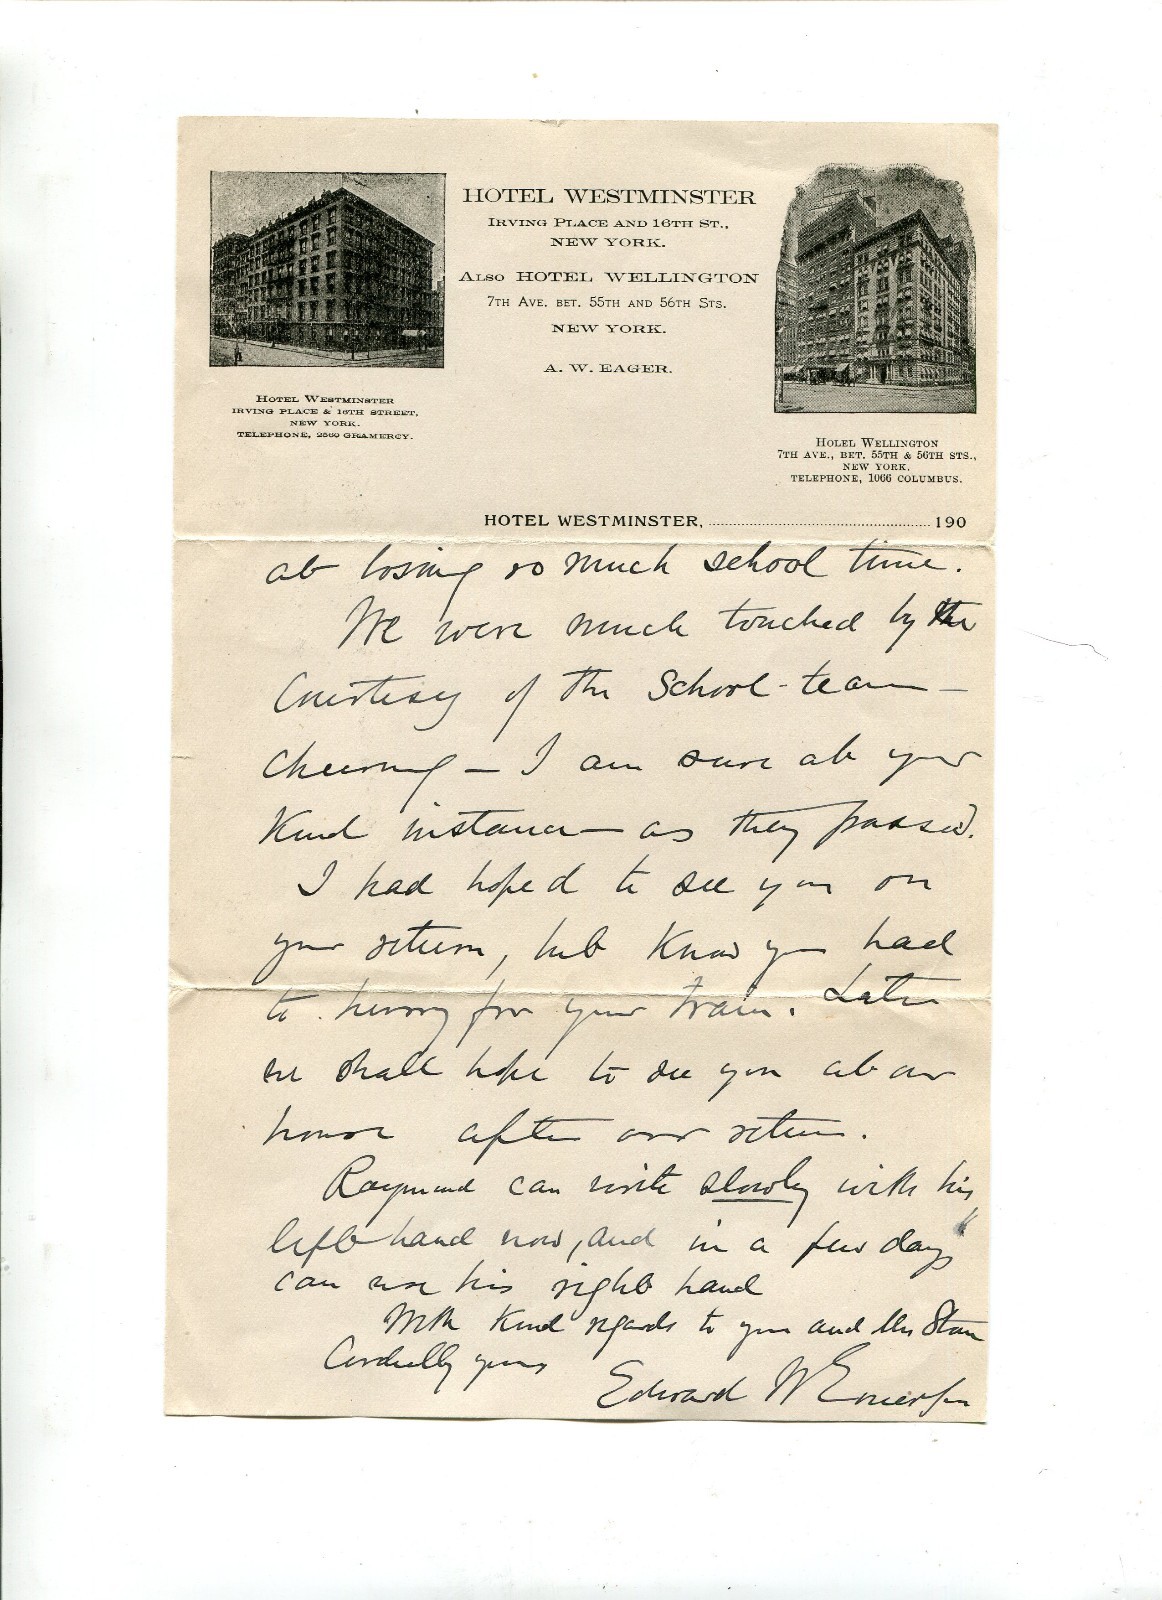 HOTEL WESTMINSTER
IRVING PLACE AND 16TH ST.,
NEW YORK.
ALSO HOTEL WELLINGTON
7TH AVE. BET. 55TH AND 56TH STS.
NEW YORK.
A. W. EAGER.
HOTEL WESTMINSTER
IRVING PLACE & 16TH STREET,
NEW YORK.
TELEPHONE, 2560 GRAMERCY.
HOLEL WELLINGTON
7TH AVE., BET. 55TH & 56TH STS.,
NEW YORK,
TELEPHONE, 1066 COLUMBUS.
HOTEL WESTMINSTER, 190
at losing so much school time.
We were much touched by the
Courtesy of the School-team –
cheering – I am sure at your
kind instance – as they passed.
I had hoped to see you on
your return, but know you had
to hurry for your train. Later
we shall hope to see you at our
house after our return.
Raymond can write slowly with his
left hand now, and in a few days
can use his right hand
With kind regards to you and Mrs
Cordially yours
Edward W Emerson